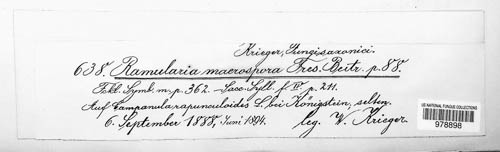 Krieger, Fungi saxonici.
638. Ramularia macrospora Fres. Beitr. p. 88.
Fckl. Symb. m. p. 362. - Sacc. Syll. f. IV. p. 211.
Auf Campanula rapunculoides L. bei Königstein, selten.
6. September 1888, Juni 1894. leg. W. Krieger.
US NATIONAL FUNGUS COLLECTIONS
978898